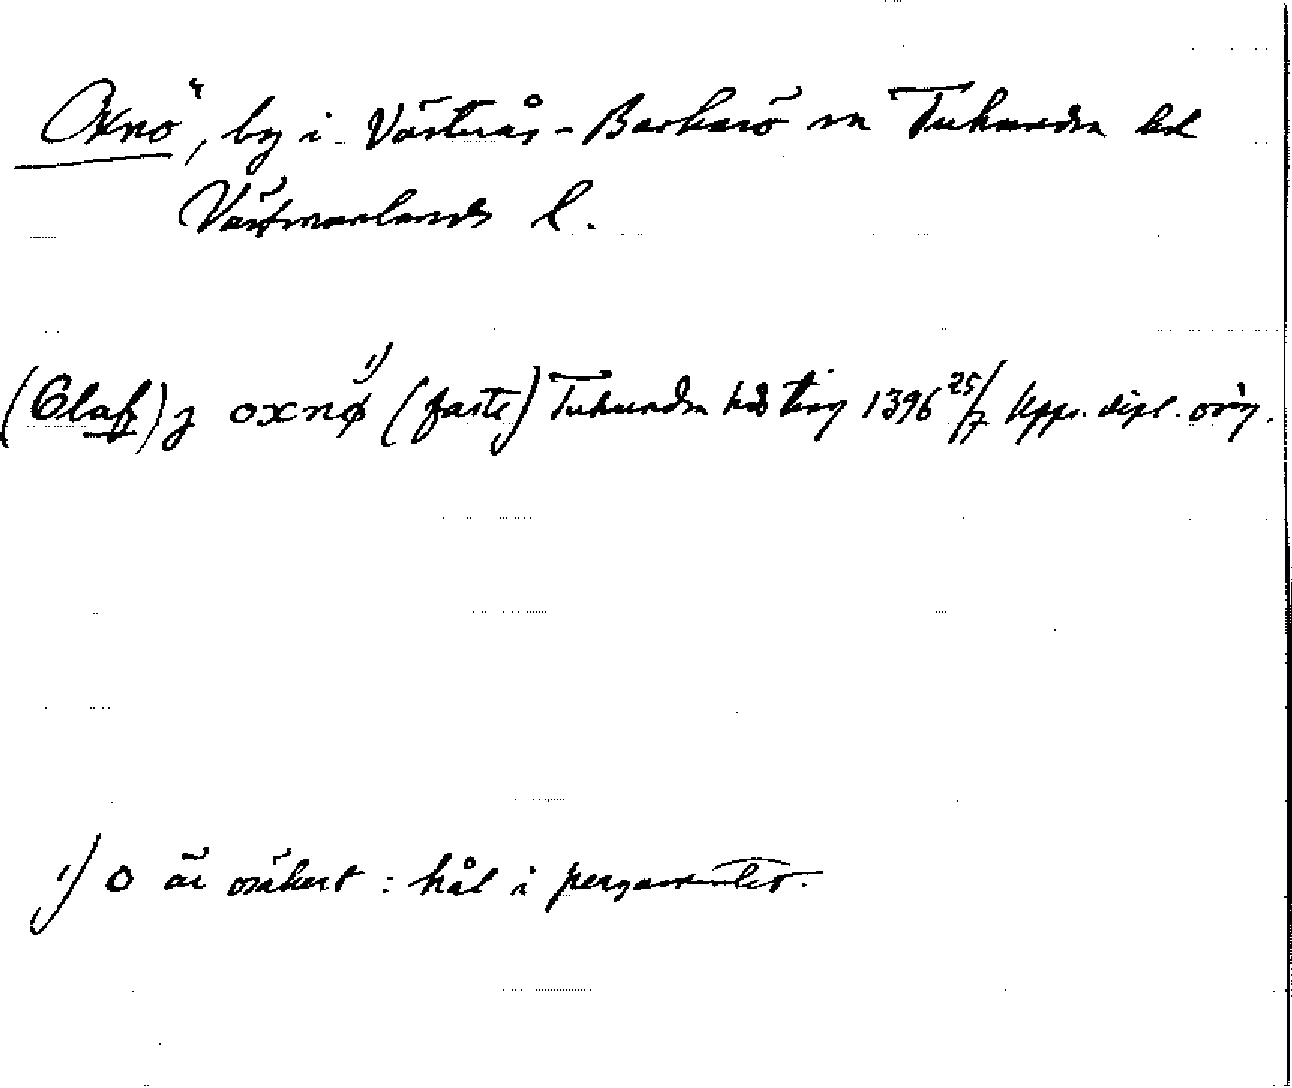 Oxnö, by i Västerås-Barkarö sn Tuhundra hd
Västmanlands l.
(Olafz) j oxnø 1) (faste) Tuhundra hds ting 1396 25/7 Upps. dipl. orig.
1) o är osäkert : hål i pergamentet.